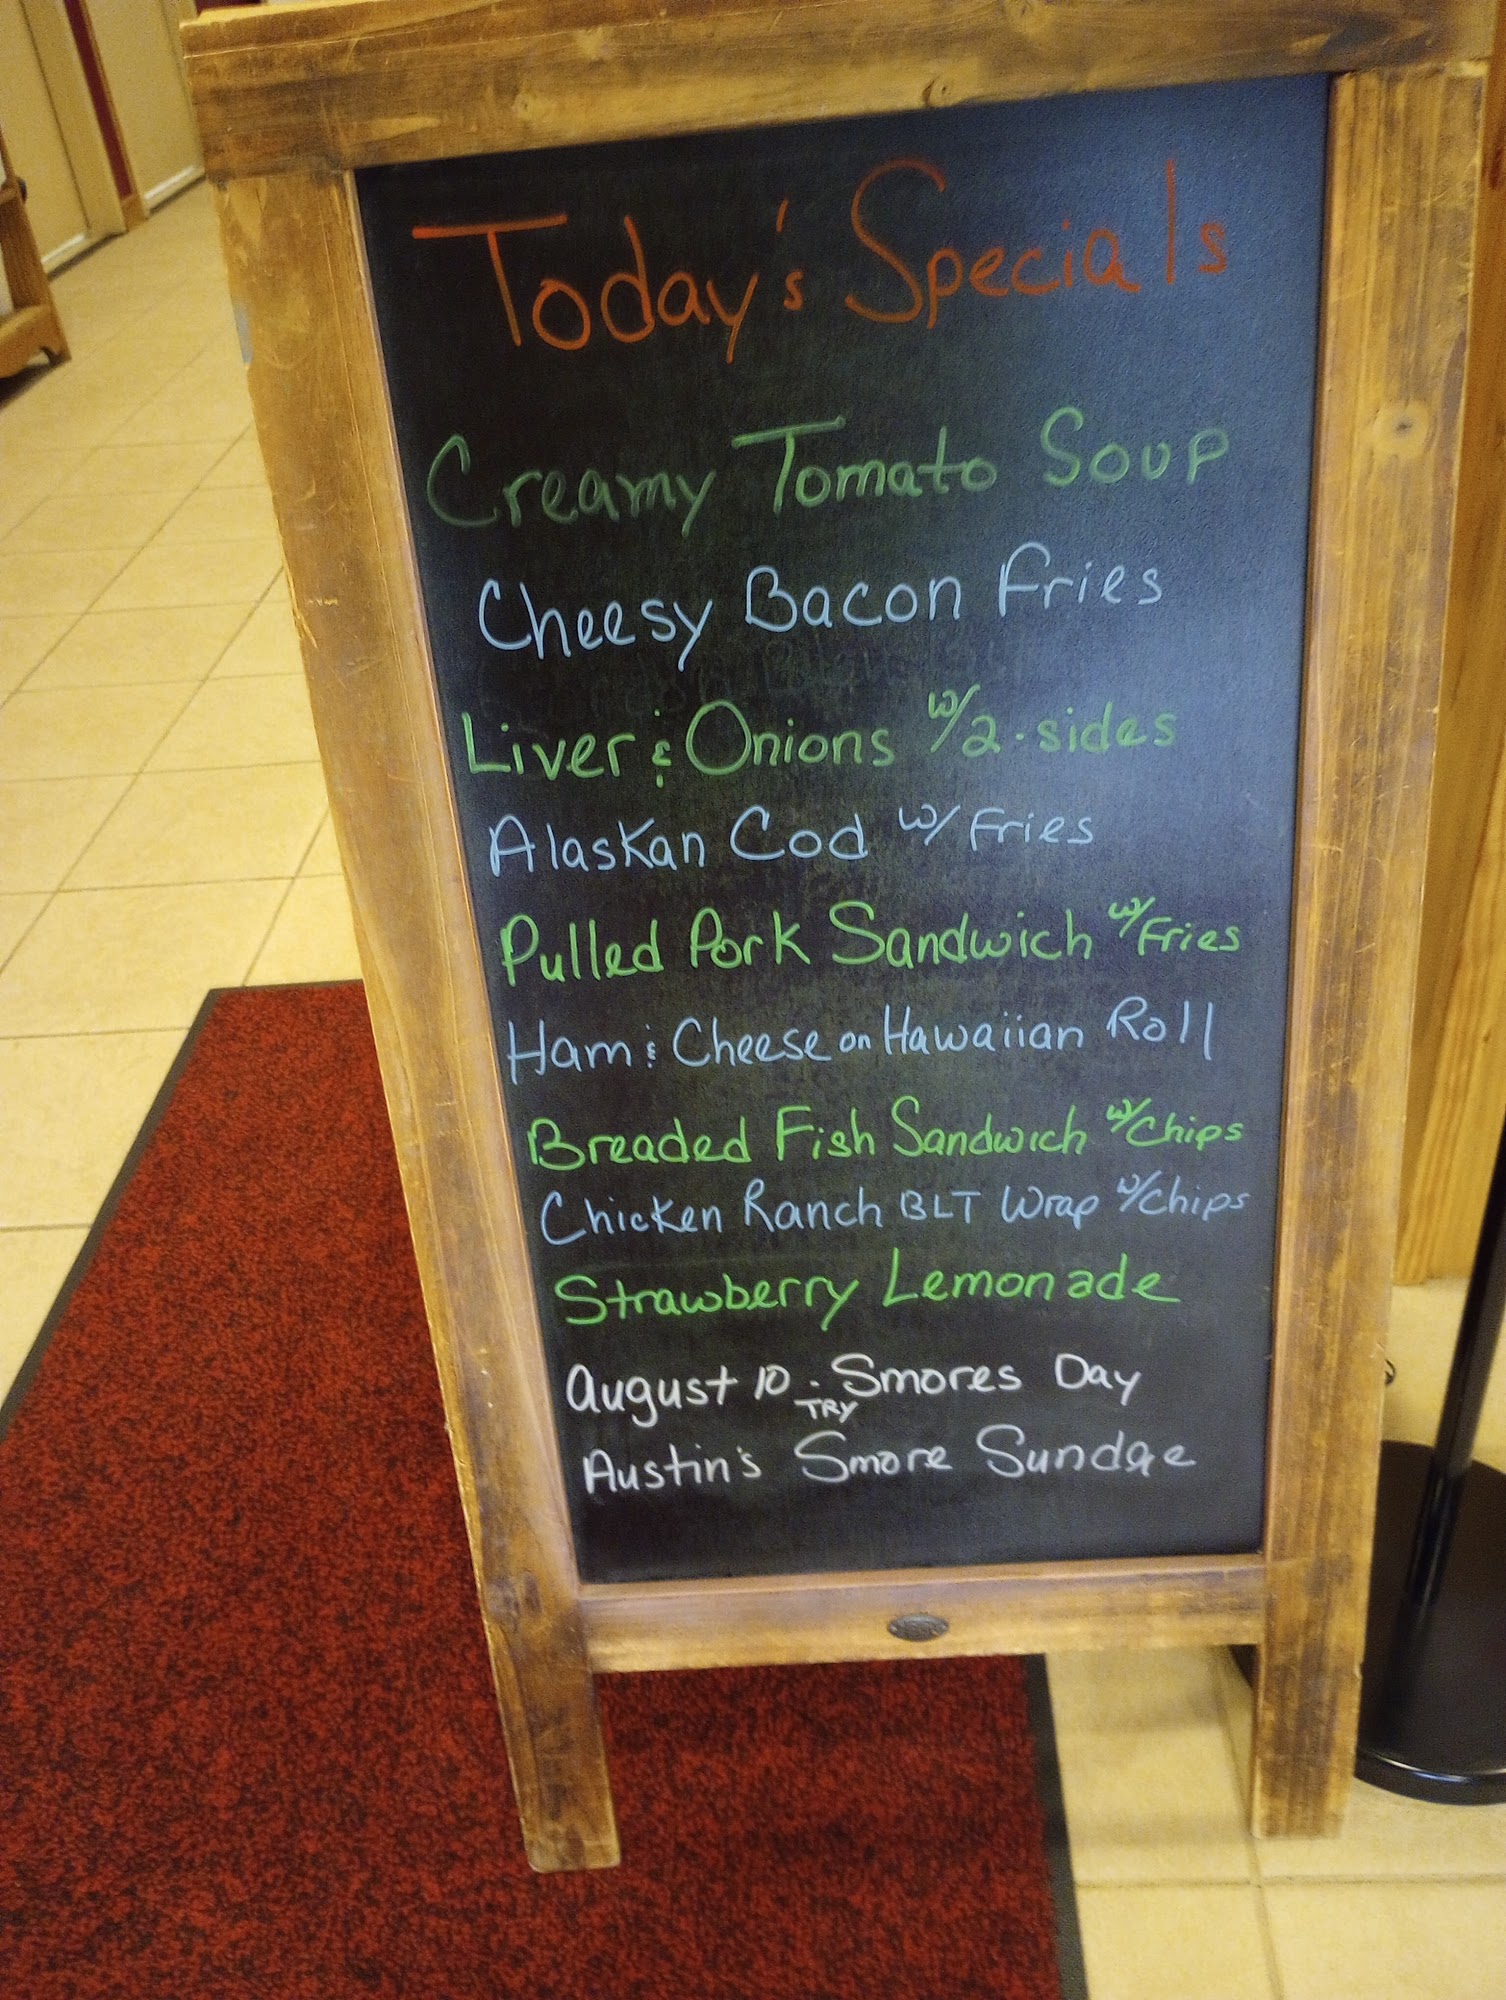 Today's Specials
Creamy Tomato Soup
Cheesy Bacon Fries
Liver & Onions w/2-sides
Alaskan Cod w/Fries
Pulled Pork Sandwich w/Fries
Ham & Cheese on Hawaiian Roll
Breaded Fish Sandwich w/Chips
Chicken Ranch BLT Wrap w/Chips
Strawberry Lemonade
August 10 - Smores Day
TRY
Austin's Smore Sundae